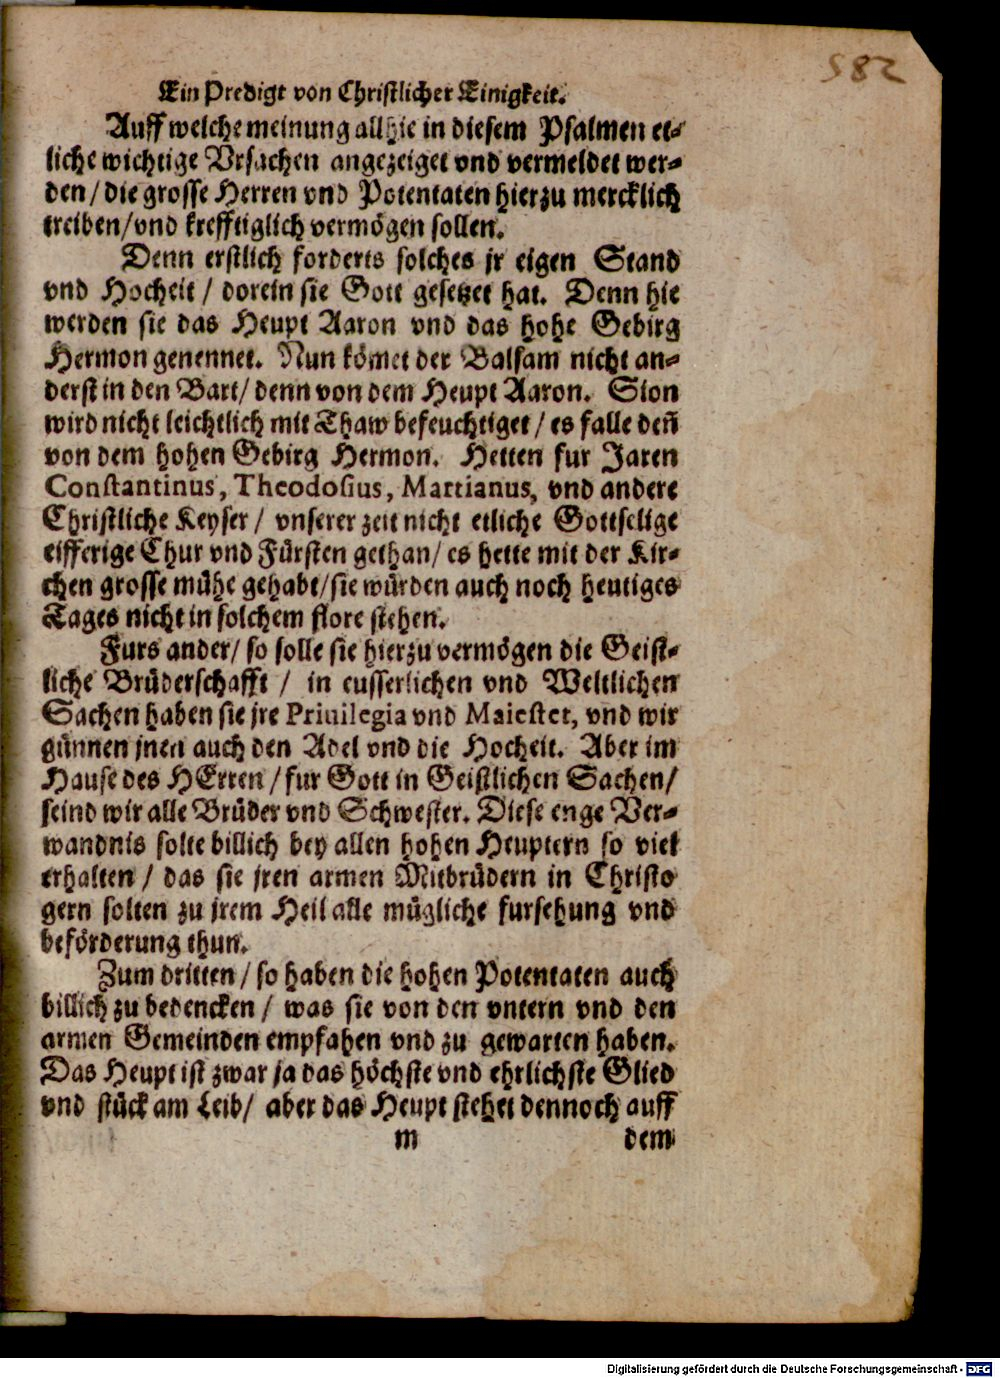 582
Ein Predigt von Christlicher Einigkeit.
Auff welche meinung allhie in diesem Psalmen et-
liche wichtige Vrsachen angezeiget vnd vermeldet wer-
den / die grosse Herren vnd Potentaten hierzu mercklich
treiben / vnd krefftiglich vermögen sollen.
Denn erstlich forderts solches jr eigen Stand
vnd Hocheit / dorein sie Gott gesetzet hat. Denn hie
werden sie das Heupt Aaron vnd das hohe Gebirg
Hermon genennet. Nun kömet der Balsam nicht an-
derst in den Bart / denn von dem Heupt Aaron. Sion
wird nicht leichtlich mit Thaw befeuchtiget / es falle deñ
von dem hohen Gebirg Hermon. Hetten fur Jaren
Constantinus, Theodosius, Martianus, vnd andere
Christliche Keyser / vnserer zeit nicht etliche Gottselige
eifferige Chur vnd Fürsten gethan / es hette mit der Kir-
chen grosse mühe gehabt / sie würden auch noch heutiges
Tages nicht in solchem flore stehen.
Furs ander / so solle sie hierzu vermögen die Geist-
liche Brüderschafft / in eusserlichen vnd Weltlichen
Sachen haben sie jre Priuilegia vnd Maiestet, vnd wir
günnen jnen auch den Adel vnd die Hocheit. Aber im
Hause des HErren / fur Gott in Geistlichen Sachen /
seind wir alle Brüder vnd Schwester. Diese enge Ver-
wandnis solte billich bey allen hohen Heuptern so viel
erhalten / das sie jren armen Mitbrüdern in Christo
gern solten zu jrem Heil alle mügliche fursehung vnd
beförderung thun.
Zum dritten / so haben die hohen Potentaten auch
billich zu bedencken / was sie von den vntern vnd den
armen Gemeinden empfahen vnd zu gewarten haben.
Das Heupt ist zwar ja das höchste vnd ehrlichste Glied
vnd stück am Leib / aber das Heupt stehet dennoch auff
m dem
Digitalisierung gefördert durch die Deutsche Forschungsgemeinschaft - DFG